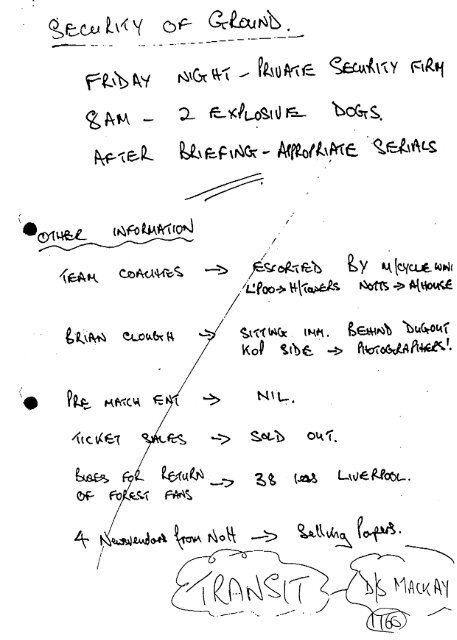 SECURITY OF GROUND.
FRIDAY NIGHT - PRIVATE SECURITY FIRM
8AM - 2 EXPLOSIVE DOGS.
AFTER BRIEFING - APPROPRIATE SERIALS
OTHER INFORMATION
TEAM COACHES → ESCORTED BY M/CYCLE WING
L'POO → H/TOWERS NOTTS → A/HOUSE
BRIAN CLOUGH → SITTING IMM. BEHIND DUGOUT
KOP SIDE → PHOTOGRAPHERS!.
PRE MATCH ENT → NIL.
TICKET SALES → SOLD OUT.
BUSES FOR RETURN → 38 LIVERPOOL.
OF FOREST FANS
4 Newsvendors from Nott → Selling Papers.
TRANSIT - D/S MACKAY
1766